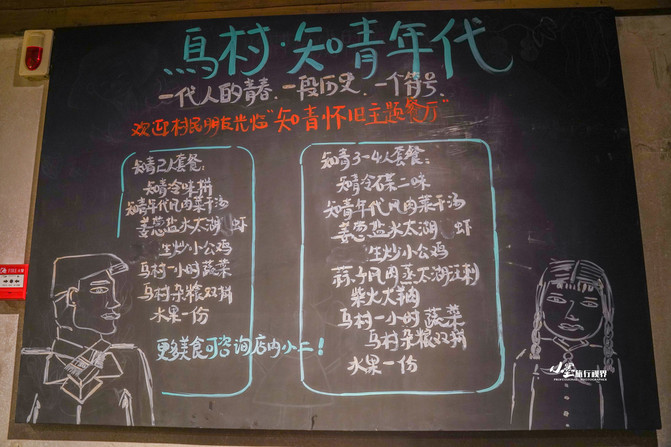 馬村·知青年代
一代人的青春.一段历史.一个符号.
欢迎村民朋友光临"知青怀旧主题餐厅"
知青2人套餐:
知青冷味拼
知青年代风肉菜干汤
姜葱盐水太湖 虾
生炒小公鸡
马村一小时蔬菜
马村杂粮双拼
水果一份
更多美食可咨询店内小二!
知青3-4人套餐:
知青冷碟二味
知青年代风肉菜干汤
姜葱盐水太湖 虾
生炒小公鸡
风肉蒸太湖
柴火大
马村一小时蔬菜
马村杂粮双拼
水果一份
旅行视界